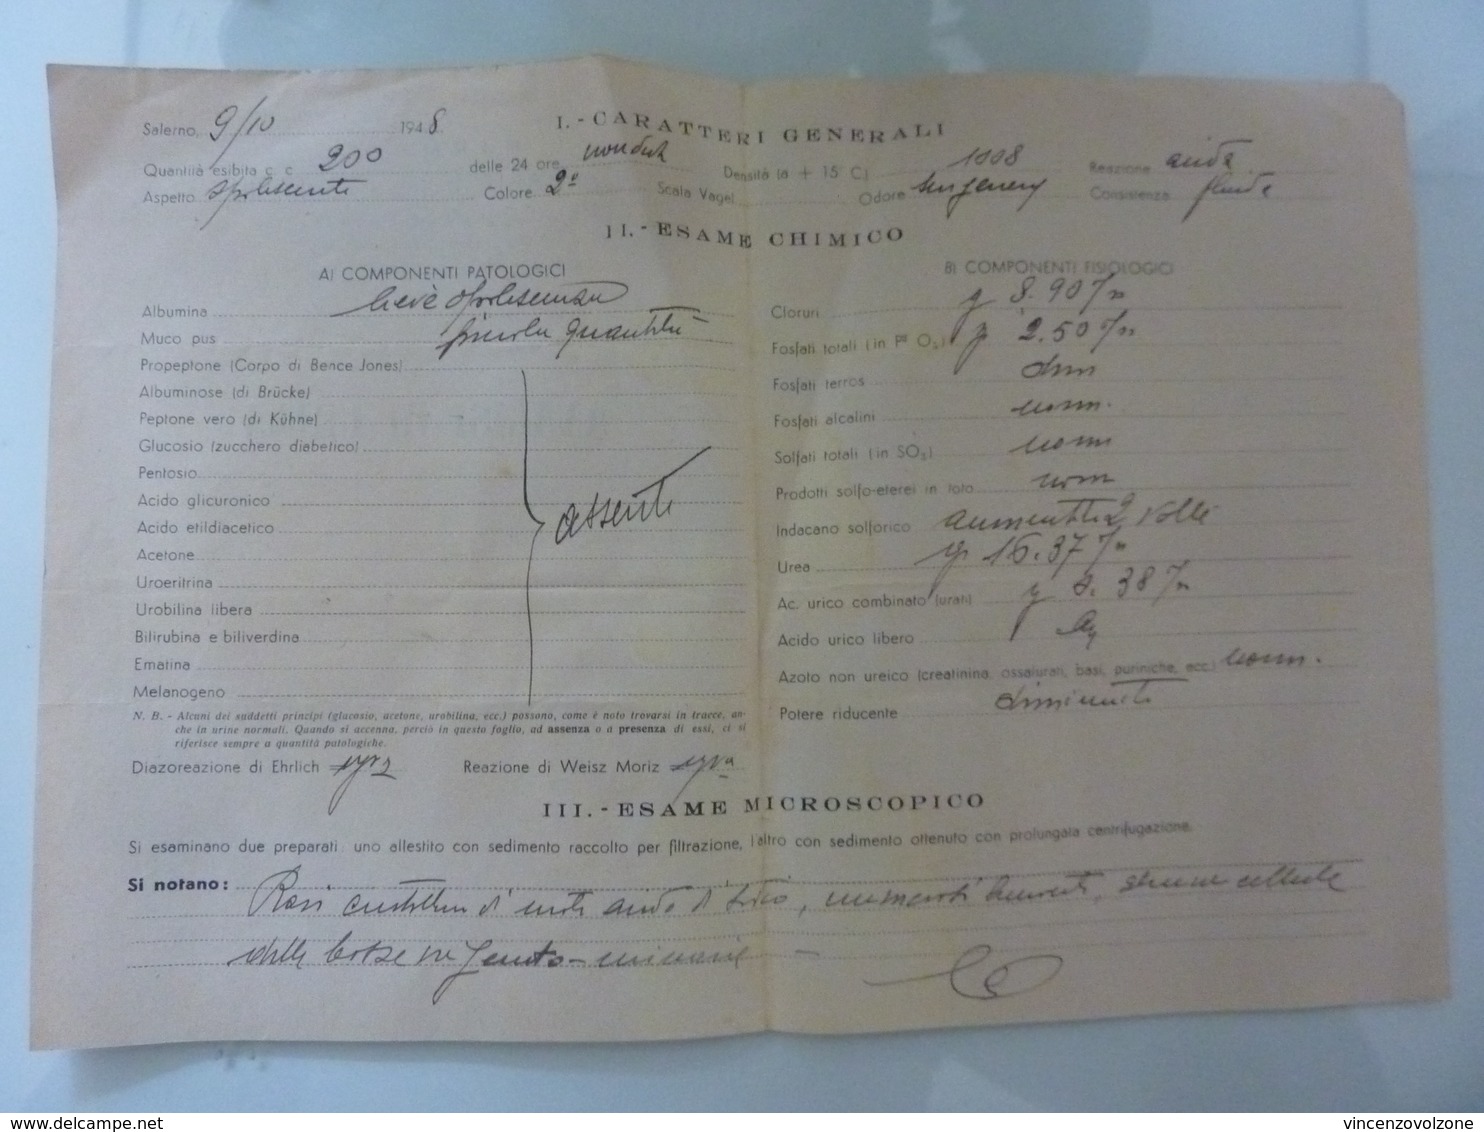 Salerno, 9/10 1948
I. - CARATTERI GENERALI
Quantità esibita c. c. 200 delle 24 ore Densità (a + 15° C) 1008 Reazione acida
Aspetto opolescente Colore 2° Scala Vogel Odore sui generis Consistenza fluida
II. - ESAME CHIMICO
A) COMPONENTI PATOLOGICI
Albumina lieve opolescenza
Muco pus piccola quantità
Propeptone (Corpo di Bence Jones)
Albuminose (di Brücke)
Peptone vero (di Kühne)
Glucosio (zucchero diabetico)
Pentosio
Acido glicuronico
Acido etildiacetico
Acetone
Uroeritrina
Urobilina libera
Bilirubina e biliverdina
Ematina
Melanogeno
assenti
N. B. - Alcuni dei suddetti principi (glucosio, acetone, urobilina, ecc.) possono, come è noto trovarsi in tracce, an-
che in urine normali. Quando si accenna, perciò in questo foglio, ad assenza o a presenza di essi, ci si
riferisce sempre a quantità patologiche.
Diazoreazione di Ehrlich Reazione di Weisz Moriz
B) COMPONENTI FISIOLOGICI
Cloruri g 8.90
Fosfati totali (in P² O₅) g 2.50
Fosfati terros dim
Fosfati alcalini norm.
Solfati totali (in SO₃) norm
Prodotti solfo-eterei in toto norm
Indacano solforico aumentato 2 volte
Urea gr 16.37
Ac. urico combinato (urati) g 0.38
Acido urico libero
Azoto non ureico (creatinina, ossaluran, basi, puriniche, ecc.) norm.
Potere riducente diminuito
III. - ESAME MICROSCOPICO
Si esaminano due preparati: uno allestito con sedimento raccolto per filtrazione, l'altro con sedimento ottenuto con prolungata centrifugazione.
Si notano: Rari cristallini di acido urico, numerosi leucociti, alcune cellule
delle basse vie genito-urinarie
delcampe.net
vincenzovolzone